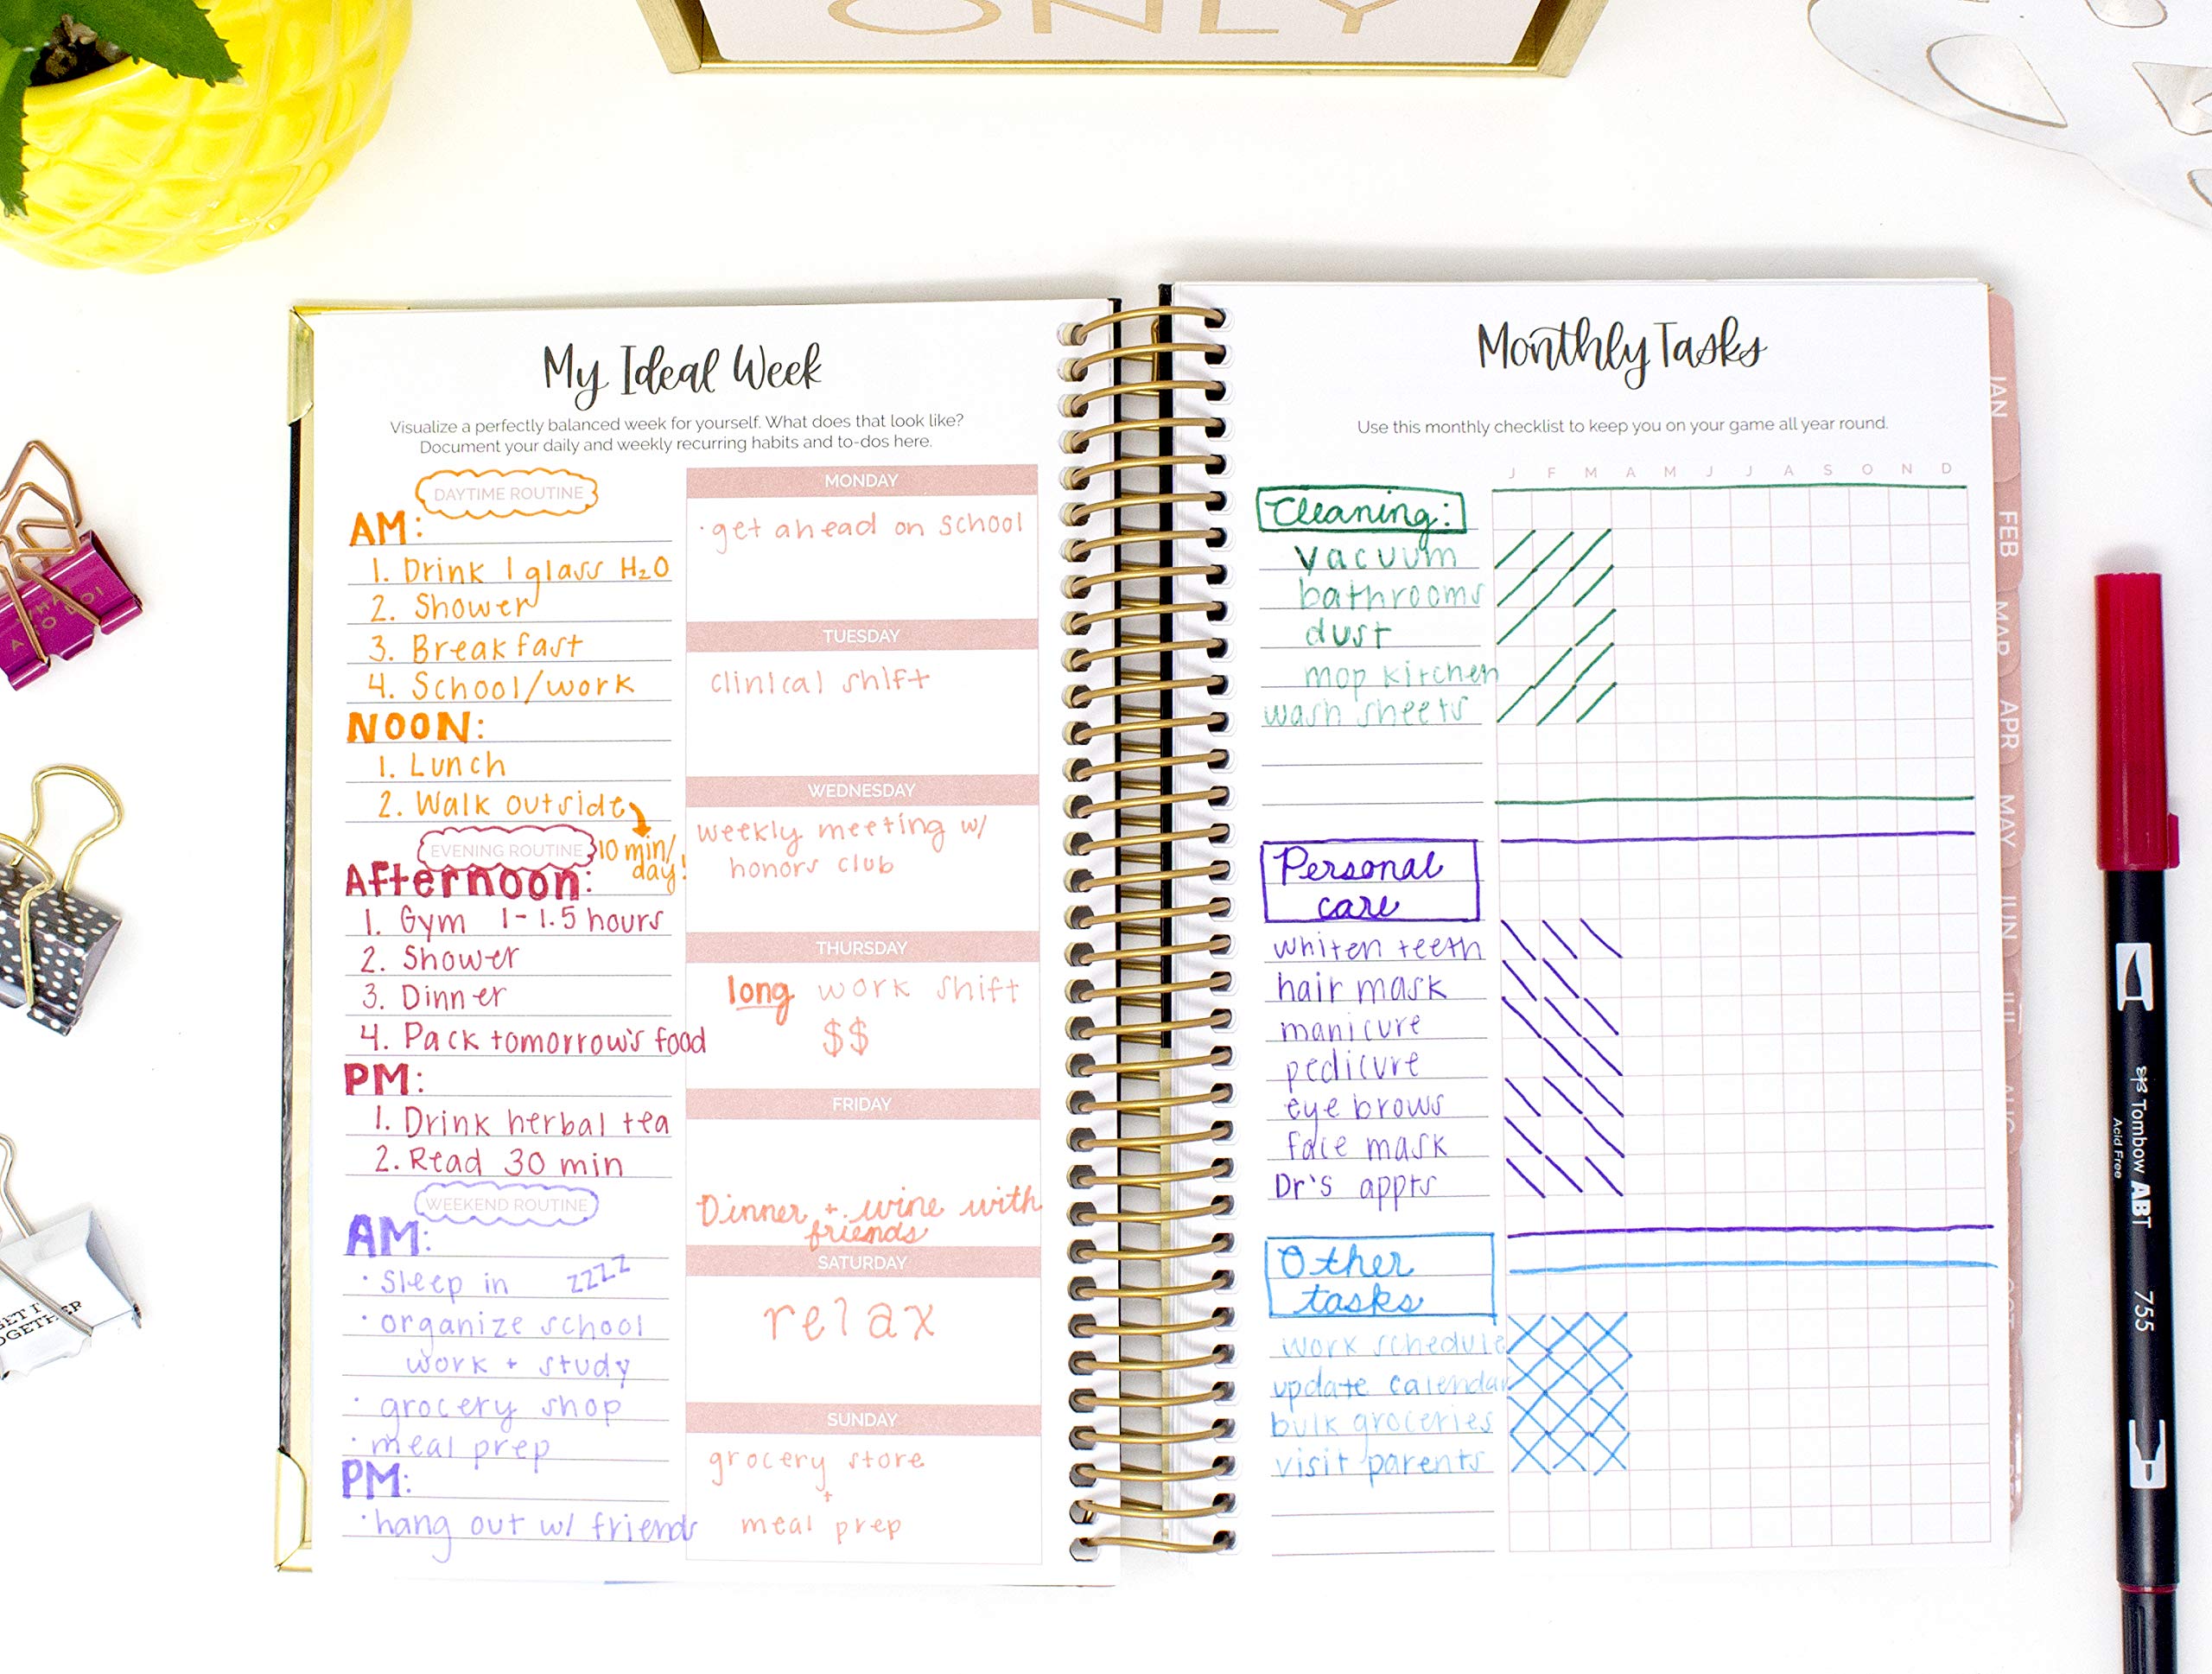 ONLY
My Ideal Week
Visualize a perfectly balanced week for yourself. What does that look like?
Document your daily and weekly recurring habits and to-dos here.
DAYTIME ROUTINE
AM:
1. Drink 1 glass H₂O
2. Shower
3. Breakfast
4. School/work
NOON:
1. Lunch
2. Walk outside
10 min/
day!
EVENING ROUTINE
Afternoon:
1. Gym 1-1.5 hours
2. Shower
3. Dinner
4. Pack tomorrow's food
PM:
1. Drink herbal tea
2. Read 30 min
WEEKEND ROUTINE
AM:
· Sleep in zzzz
· organize school
work + study
· grocery shop
· meal prep
PM:
· hang out w/ friends
MONDAY
· get ahead on school
TUESDAY
clinical shift
WEDNESDAY
weekly meeting w/
honors club
THURSDAY
long work shift
$$
FRIDAY
Dinner + wine with
friends
SATURDAY
relax
SUNDAY
grocery store
+
meal prep
Monthly Tasks
Use this monthly checklist to keep you on your game all year round.
J F M A M J J A S O N D
Cleaning:
vacuum
bathrooms
dust
mop kitchen
wash sheets
Personal
care
whiten teeth
hair mask
manicure
pedicure
eyebrows
face mask
Dr's appts
Other
tasks
work schedule
update calendar
bulk groceries
visit parents
JAN
FEB
MAR
APR
MAY
JUN
JUL
AUG
OCT
Tombow ABT
Acid Free
755